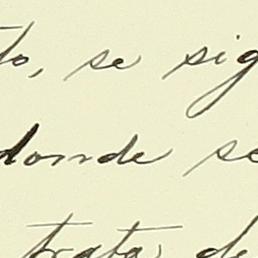 to, se sig
donde se
trata de